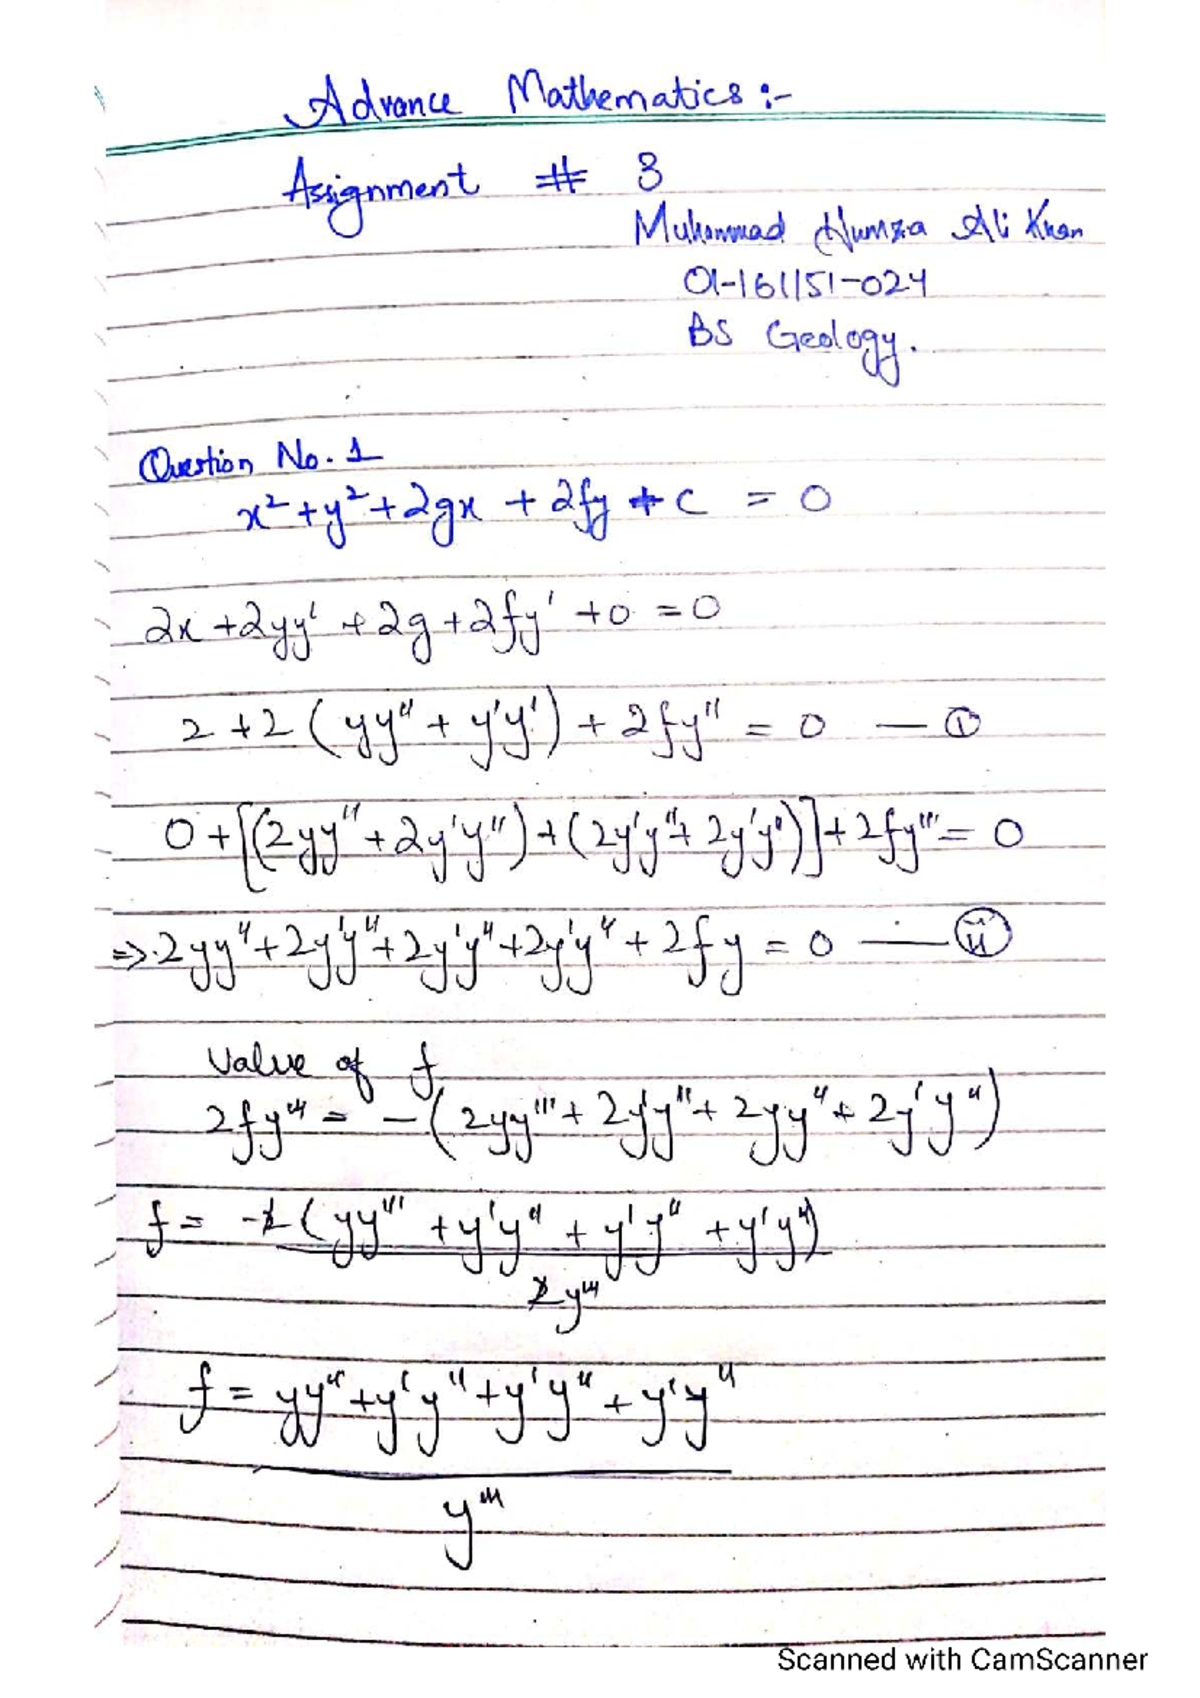 Advance Mathematics :-
Assignment # 3
Muhammad Humza Ali Khan
01-161151-024
BS Geology.
Question No. 1
x² + y² + 2gx + 2fy + c = 0
2x + 2yy' + 2g + 2fy' + 0 = 0
2 + 2 ( yy" + y'y' ) + 2fy" = 0 — ①
0 + [(2yy" + 2y'y") + (2y'y" + 2y'y")] + 2fy"' = 0
=> 2yy" + 2y'y" + 2y'y" + 2y'y" + 2fy = 0 — ii
Value of f
2fy"' = - ( 2yy"' + 2y'y" + 2yy" + 2y'y" )
f = -2 ( yy"' + y'y" + y'y" + y'y" )
2y"'
f = yy" + y'y" + y'y" + y'y"
y"'
Scanned with CamScanner